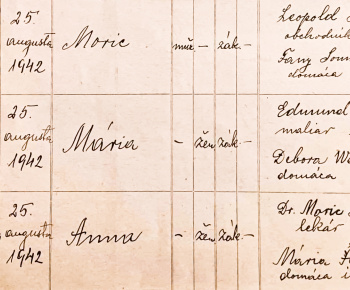 25.
augusta
1942
Moric
muž — zák. —
Leopold
obchodník
Fany
domáca
25.
augusta
1942
Mária
— žen. zák. —
Edmund
maliar
Debora
domáca
25.
augusta
1942
Anna
— žen. zák. —
Dr. Moric
lekár
Mária
domáca